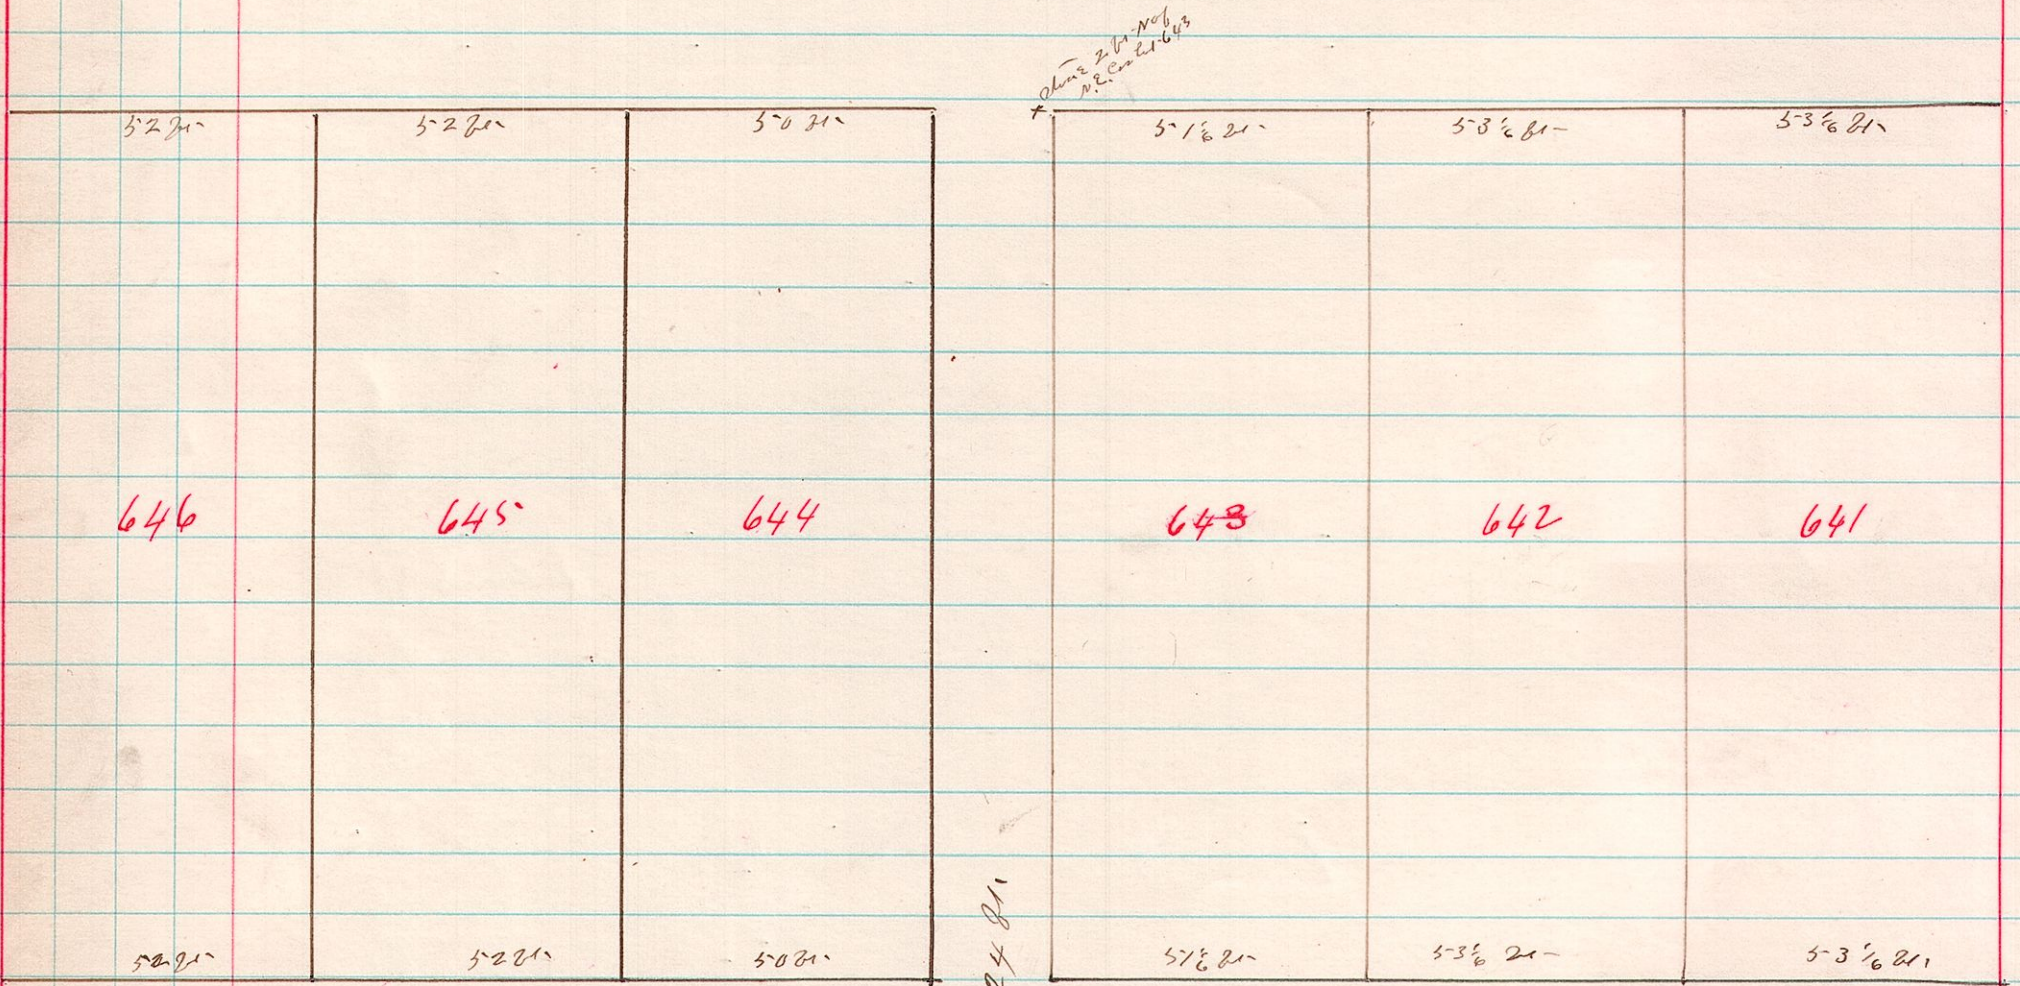 Stone 2 ft. N of
N.E. Cor Lot 643
52 ft.
52 ft.
50 ft.
51 1/6 ft.
53 1/6 ft.
53 1/6 ft.
646
645
644
643
642
641
24 ft.
52 ft.
52 ft.
50 ft.
51 1/6 ft.
53 1/6 ft.
53 1/6 ft.